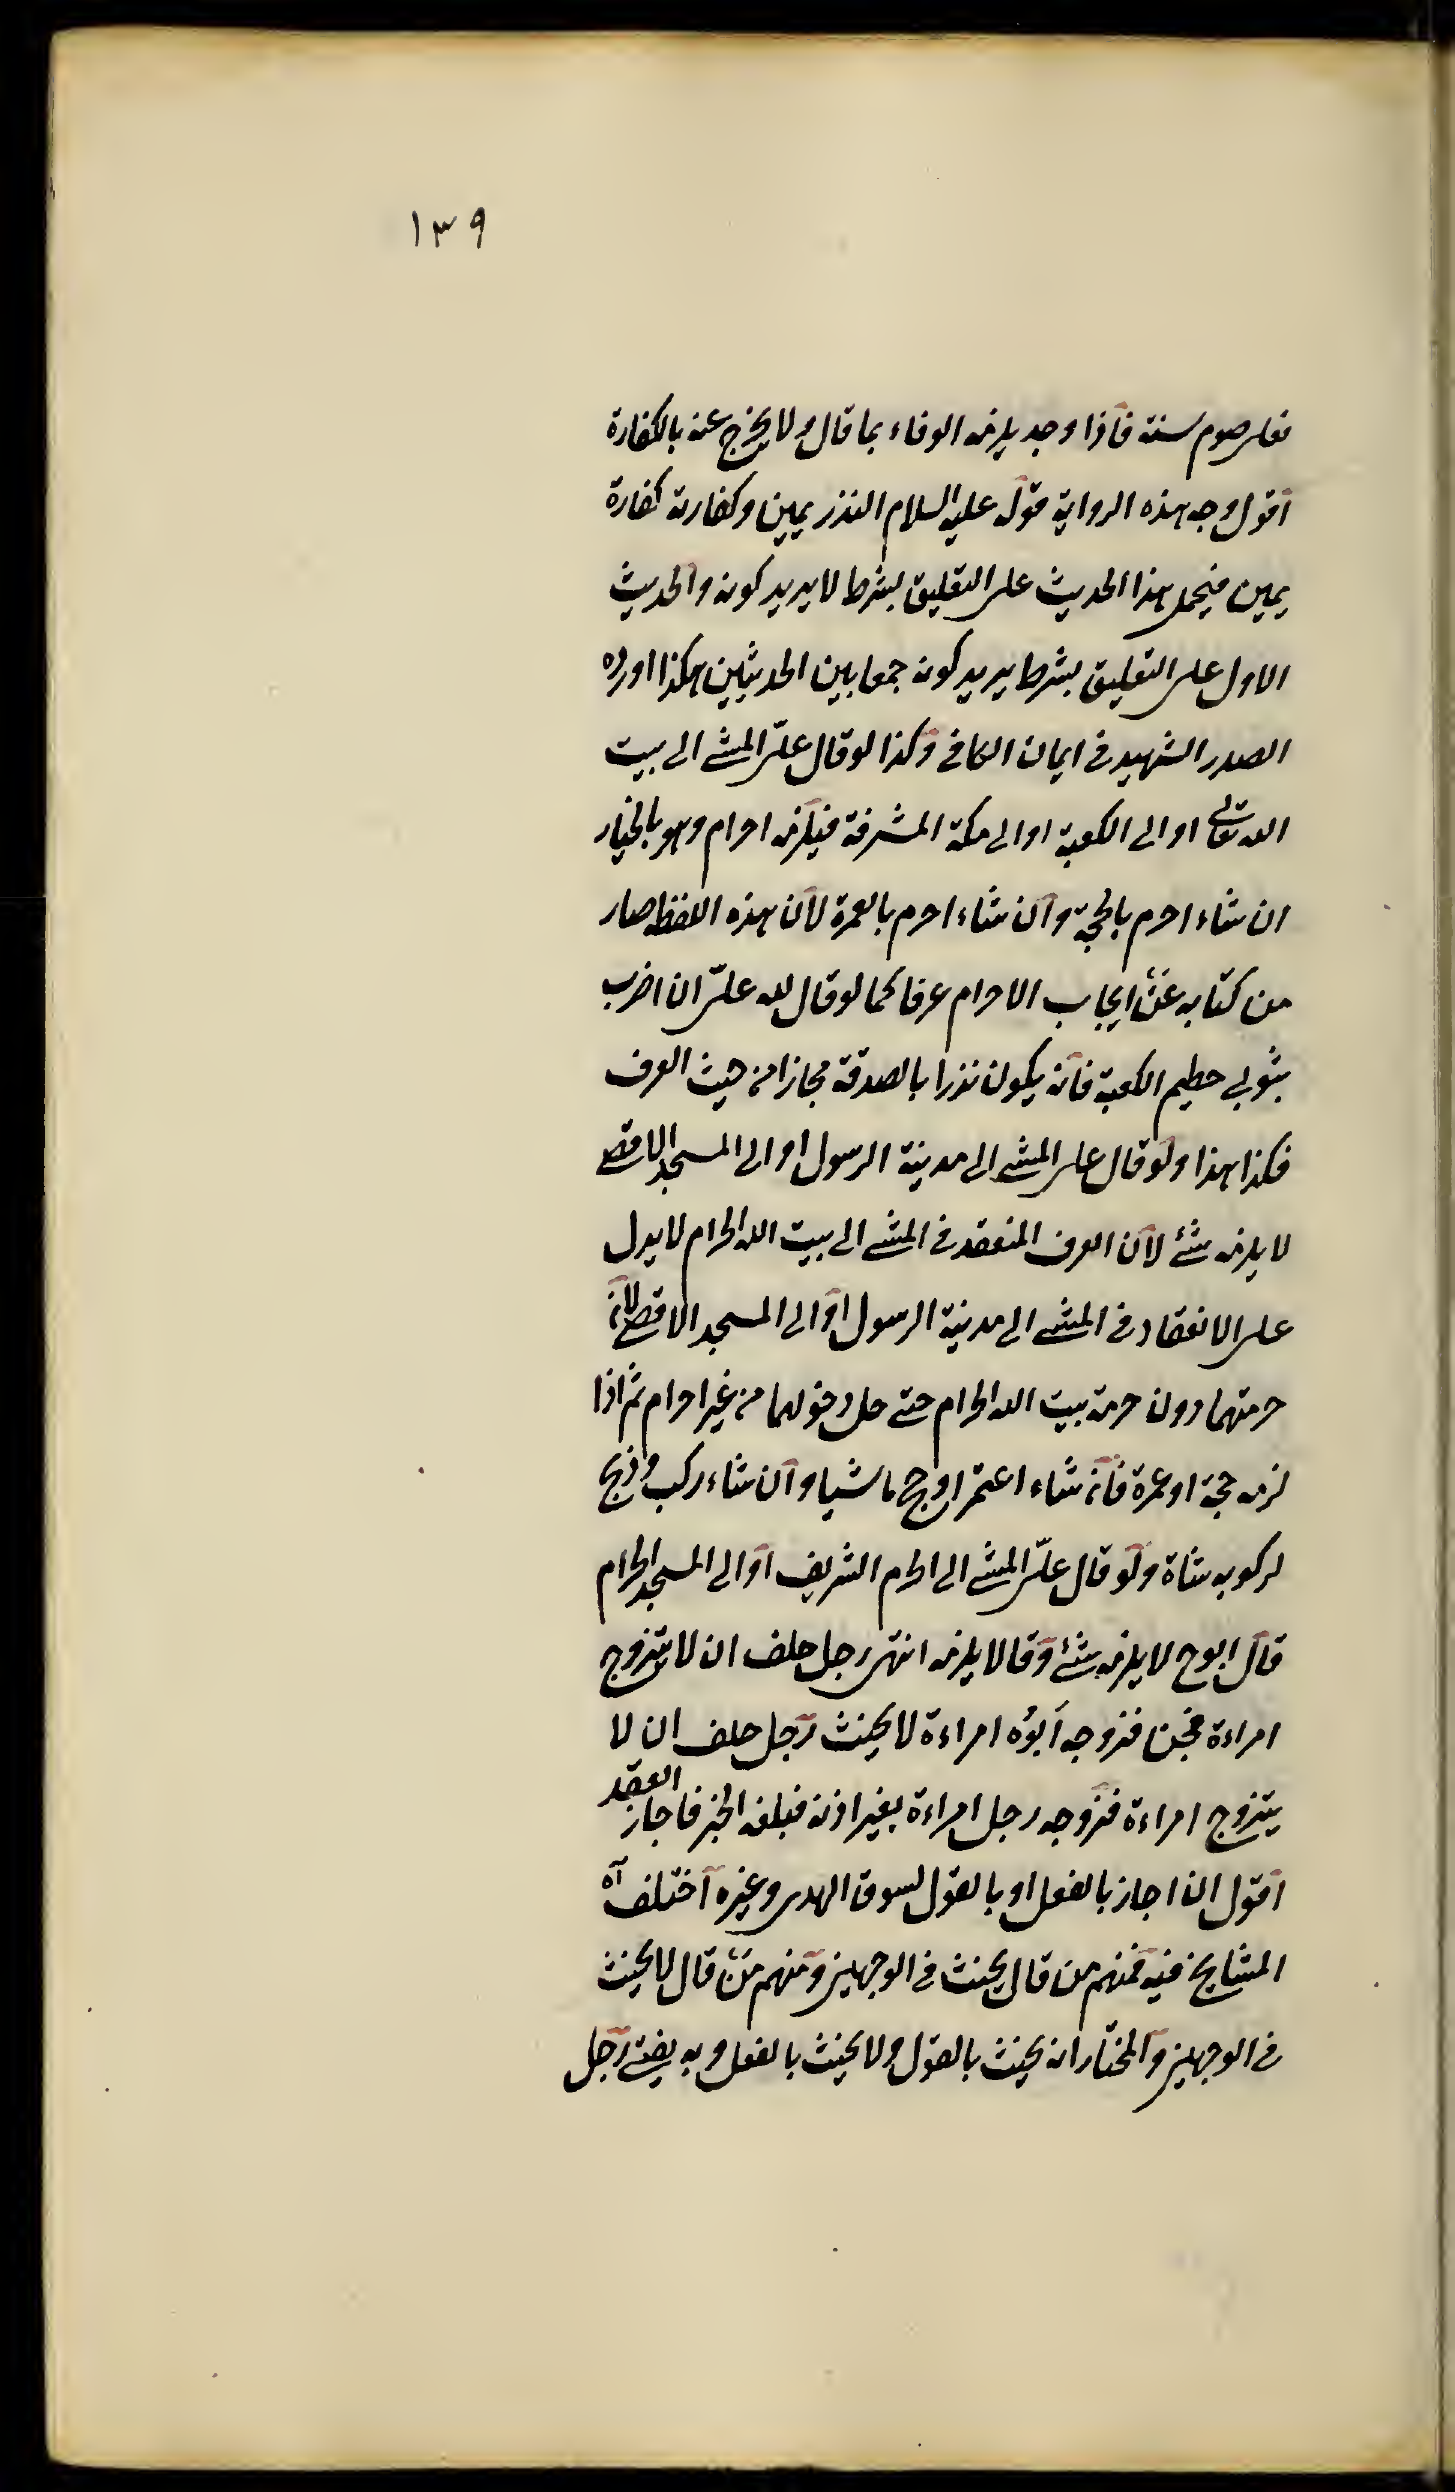 ١٣٩
فعلى صوم سنة فاذا وجد يلزمه الوفاء بما قال ولا يخرج عنه بالكفارة
اقول وجه هذه الرواية قوله عليه السلام النذر يمين وكفارته كفارة
يمين فيحمل هذا الحديث على التعليق بشرط لا يريد كونه والحديث
الاول على التعليق بشرط يريد كونه جمعا بين الحديثين هكذا اورده
الصدر الشهيد في ايمان الكافي وكذا لو قال علىّ المشي الى بيت
الله تعالى او الى الكعبة او الى مكة المشرفة فيلزمه احرام وهو بالخيار
ان شاء احرم بالحجة وان شاء احرم بالعمرة لان هذه اللفظ صار
من كنايه عن ايجاب الاحرام عرفا كما لو قال لله علىّ ان اضرب
بثوبى حطيم الكعبة فانه يكون نذرا بالصدقة مجازا من حيث العرف
فكذا هذا ولو قال على المشي الى مدينة الرسول او الى المسجد الاقصى
لا يلزمه شئ لان العرف المنعقد في المشي الى بيت الله الحرام لا يدل
على الانعقاد في المشي الى مدينة الرسول او الى المسجد الاقصى لان
حرمتهما دون حرمة بيت الله الحرام حتى حل دخولهما من غير احرام ثم اذا
لزمه حجة او عمرة فان شاء اعتمر او حج ماشيا وان شاء ركب وذبح
لركوبه شاة ولو قال علىّ المشي الى الحرم الشريف او الى المسجد الحرام
قال ابو ح لا يلزمه شئ وقالا يلزمه انتهى رجل حلف ان لا يتزوج
امراءة فجن فزوجه ابوه امراءة لا يحنث رجل حلف ان لا
يتزوج امراءة فزوجه رجل امراءة بغير اذنه فبلغه الخبر فاجاز العقد
اقول ان اجاز بالفعل او بالقول لسوق الهدى وغيره اختلف اه
المشايخ فيه فمنهم من قال يحنث في الوجهين ومنهم من قال لا يحنث
في الوجهين والمختار انه يحنث بالقول ولا يحنث بالفعل وبه يفتى رجل